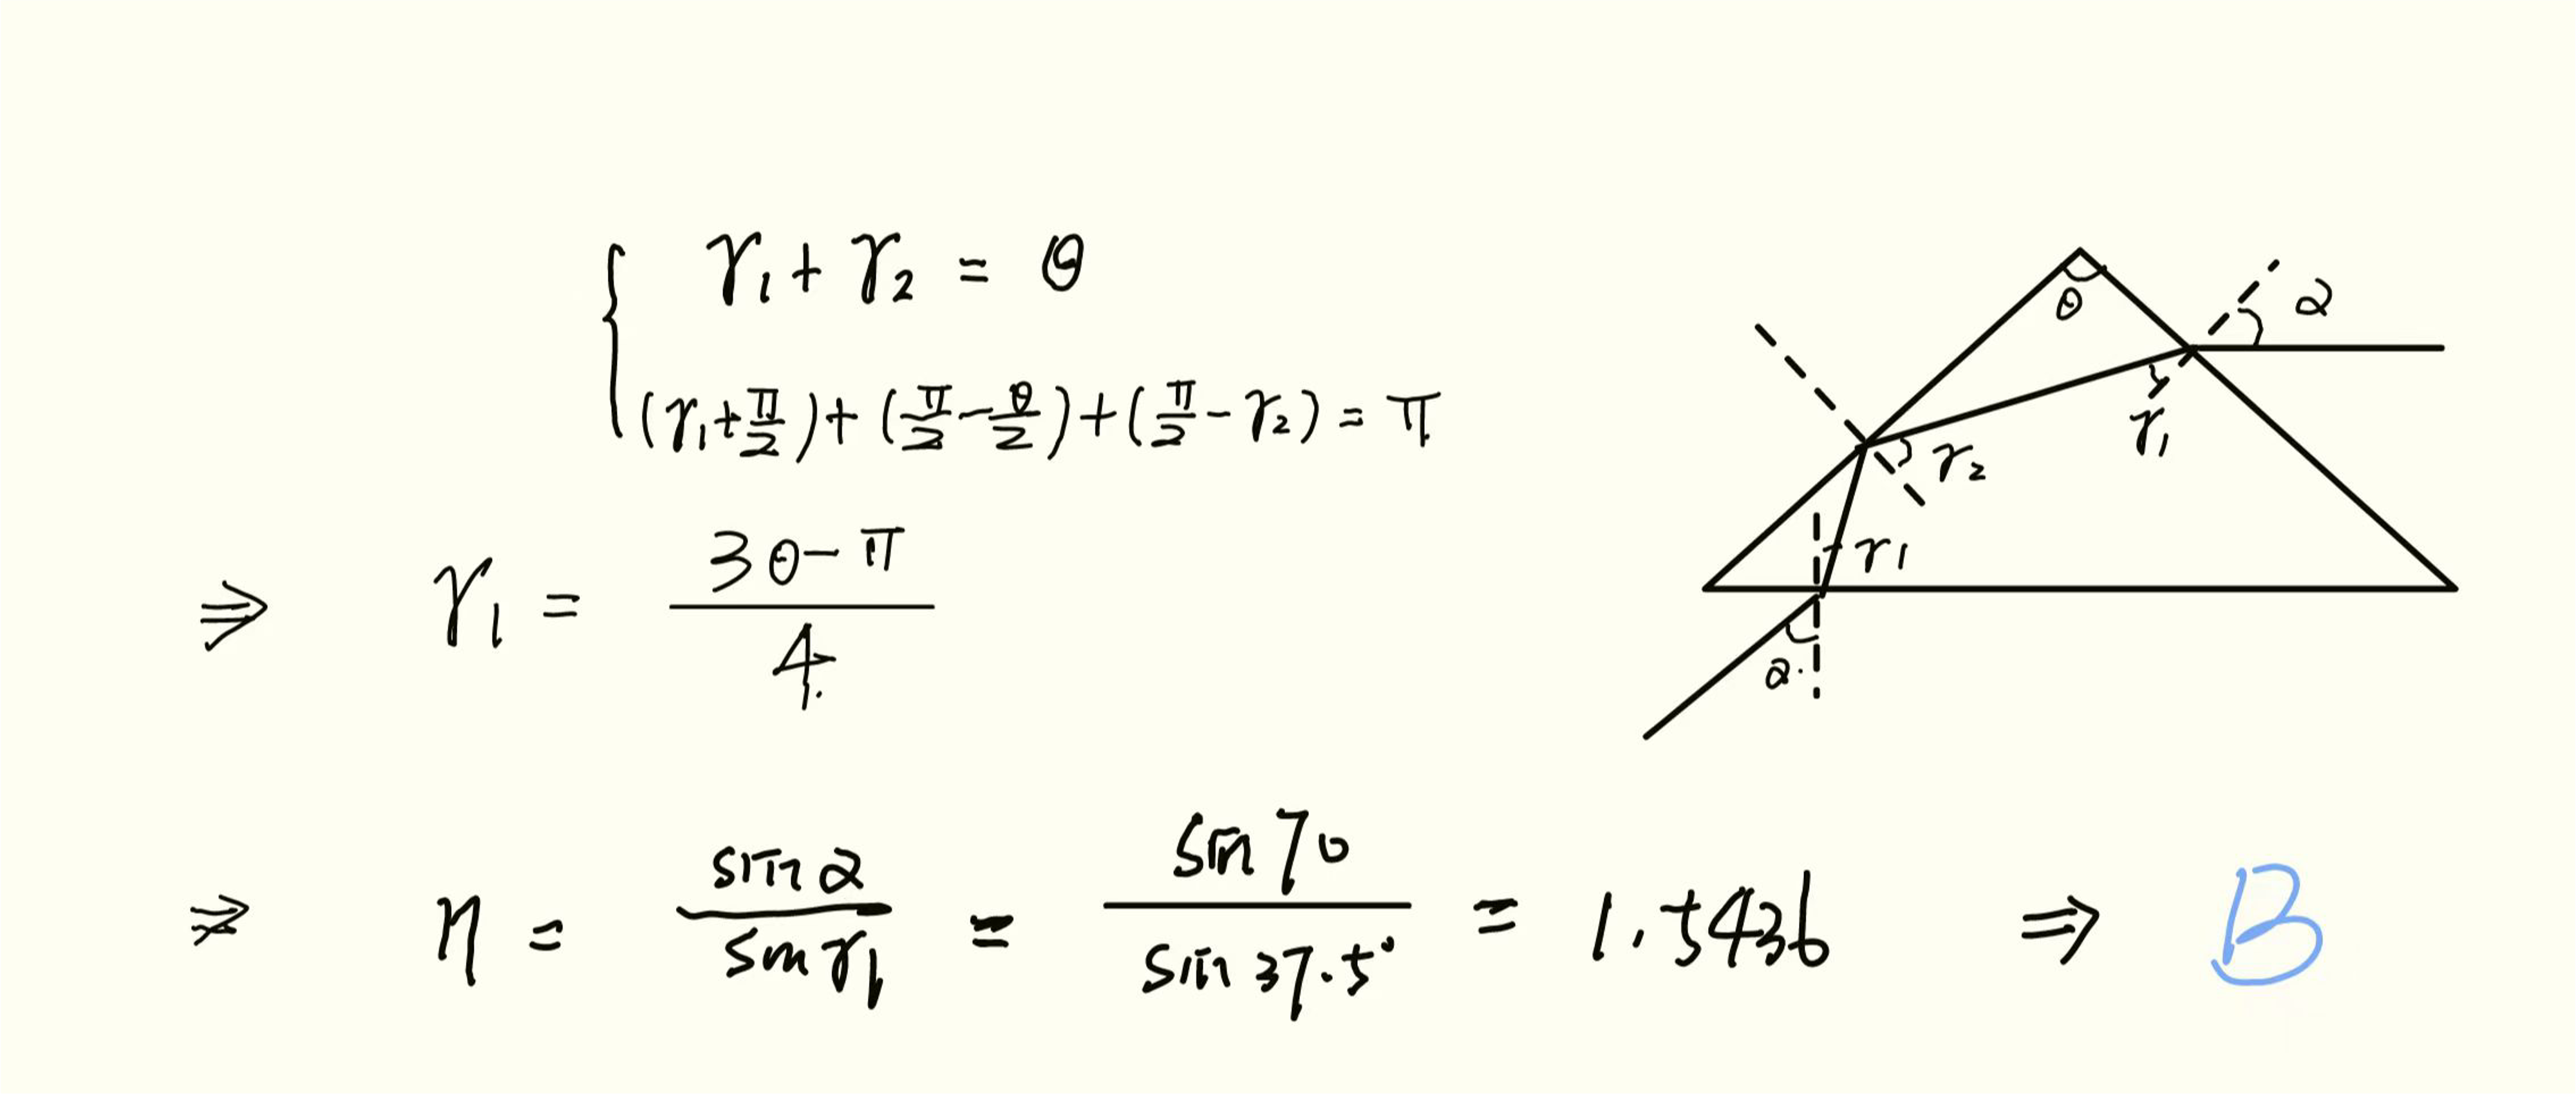 { γ₁ + γ₂ = θ
(γ₁ + π/2) + (π/2 − θ/2) + (π/2 − γ₂) = π
⇒ γ₁ = (3θ − π)/4
⇒ η = sin α / sin γ₁ = sin 70 / sin 37.5° = 1.5436 ⇒ B
θ
α
γ₁
γ₂
γ₁
α